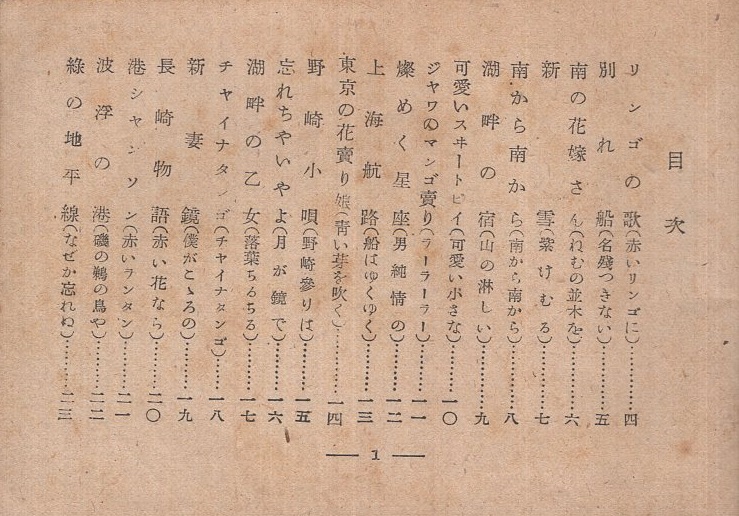 目次
リンゴの歌(赤いリンゴに)…………四
別れ船(名殘つきない)…………五
南の花嫁さん(ねむの並木を)…………六
新雪(紫けむる)…………七
南から南から(南から南から)…………八
湖畔の宿(山の淋しい)…………九
可愛いスヰートピイ(可愛い小さな)…………一〇
ジャワのマンゴ賣り(ラーラーラー)…………一一
燦めく星座(男純情の)…………一二
上海航路(船はゆくゆく)…………一三
東京の花賣り娘(靑い芽を吹く)…………一四
野崎小唄(野崎參りは)…………一五
忘れちやいやよ(月が鏡で)…………一六
湖畔の乙女(落葉ちるちる)…………一七
チャイナタンゴ(チャイナタンゴ)…………一八
新妻鏡(僕がこゝろの)…………一九
長崎物語(赤い花なら)…………二〇
港シャンソン(赤いランタン)…………二一
波浮の港(磯の鵜の鳥や)…………二二
綠の地平線(なぜか忘れぬ)…………二三
― 1 ―